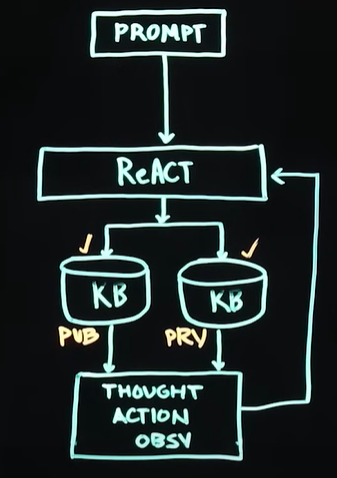 PROMPT
ReACT
KB
KB
PUB
PRV
THOUGHT
ACTION
OBSV